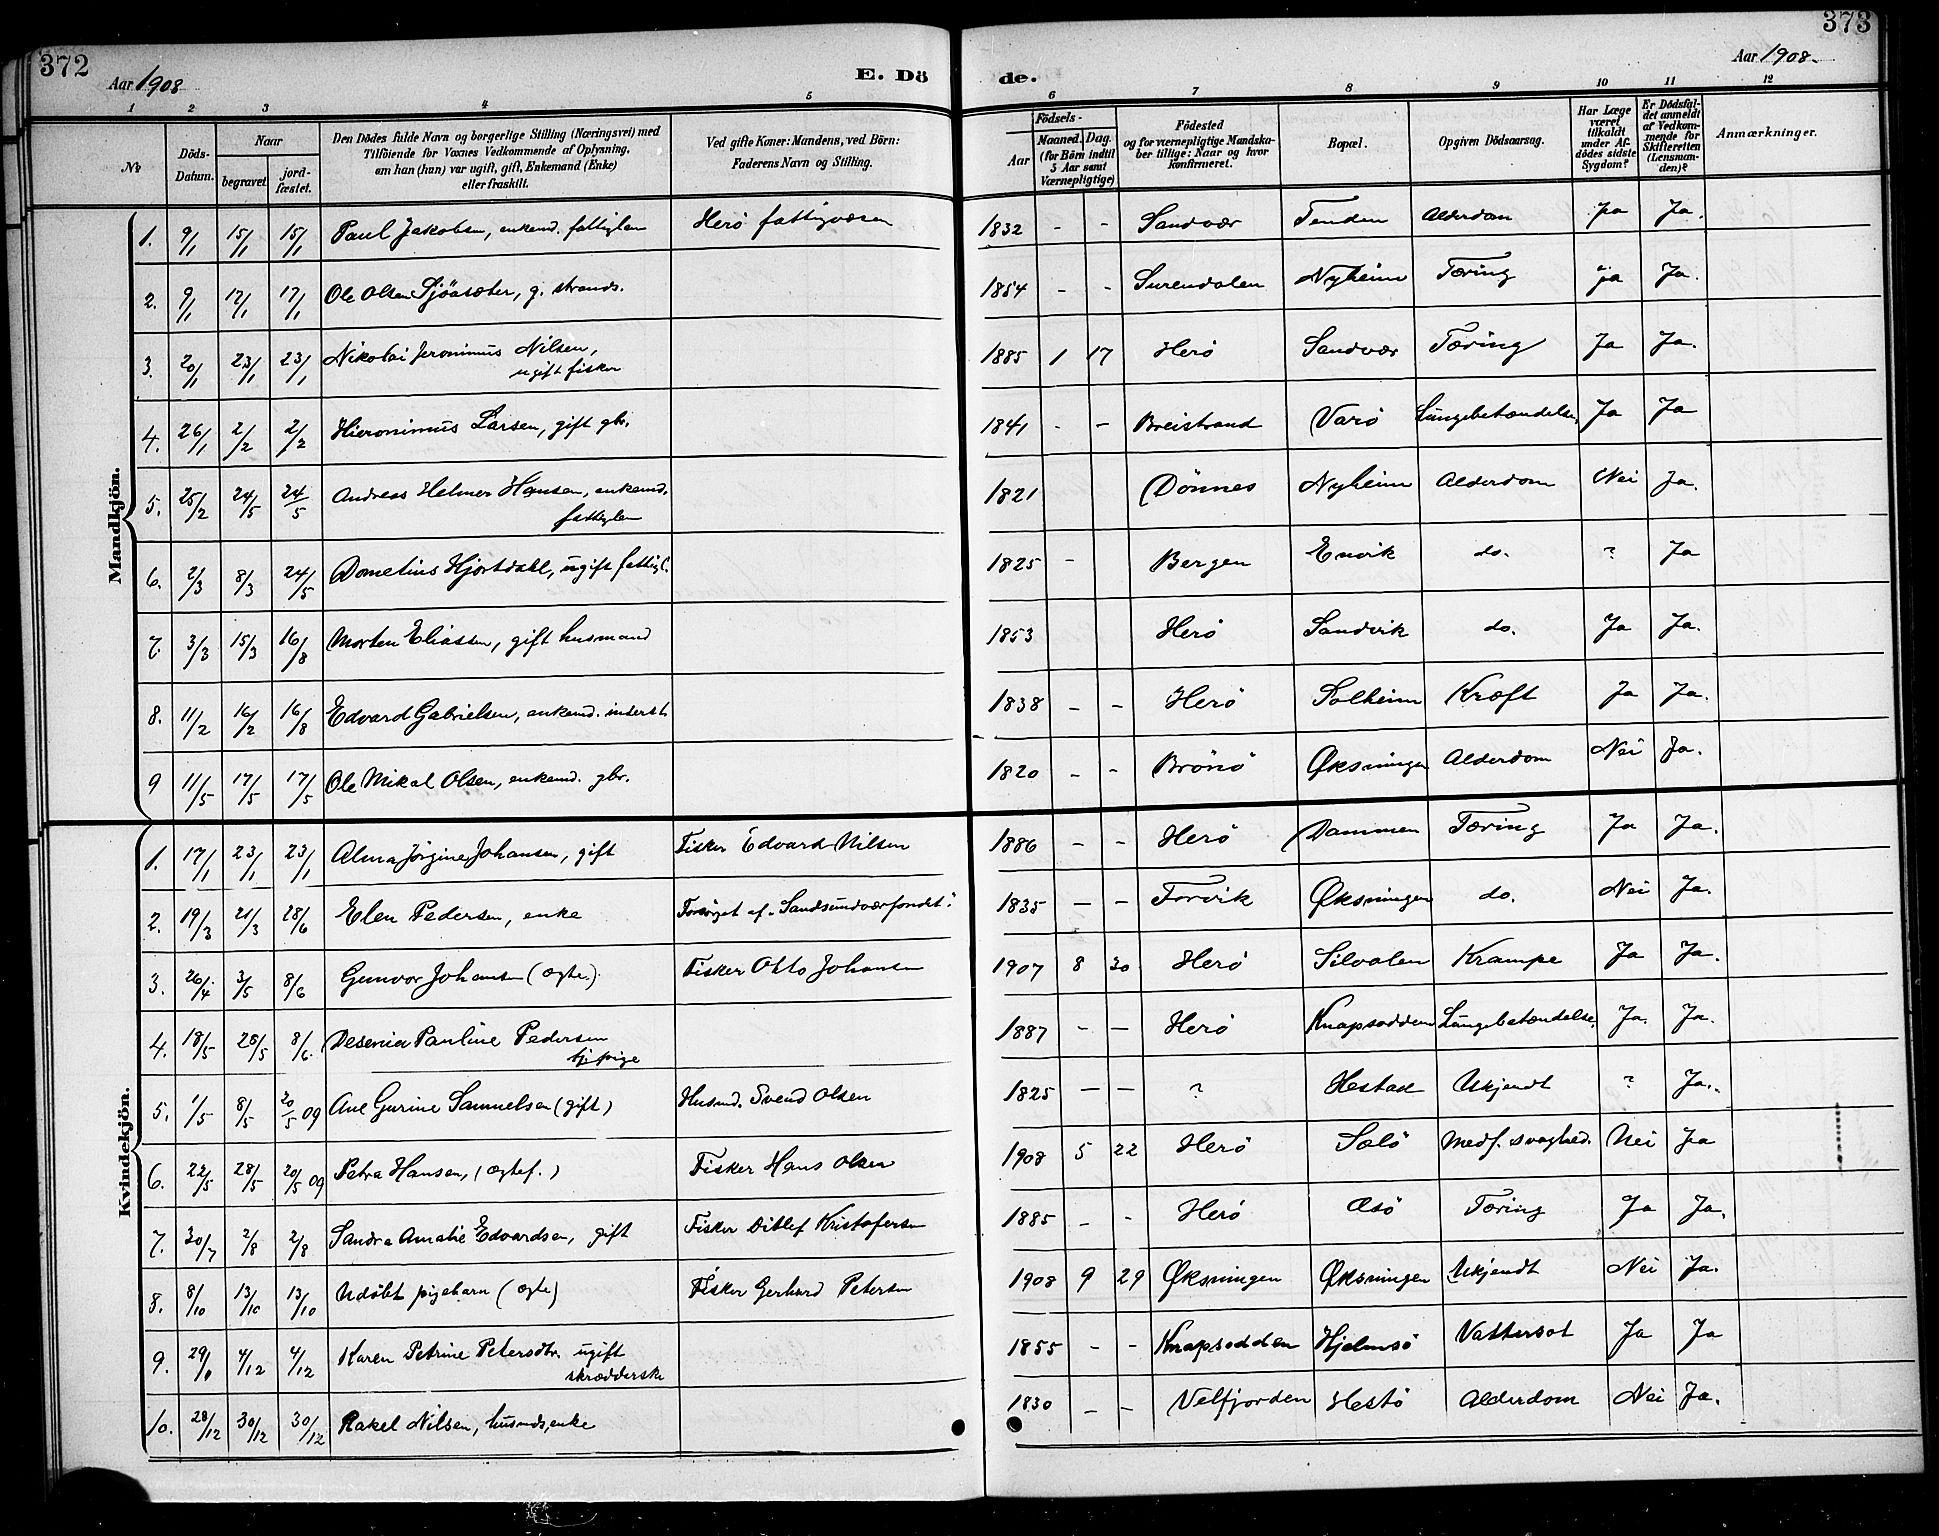 372
373
Aar 1908
E. Dö
de.
Aar 1908.
1 2 3 4 5 6 7 8 9 10 11 12
№
Döds-Datum.
Naar
begravet.
jord-fæstet.
Den Dödes fulde Navn og borgerlige Stilling (Næringsvei) med
Tilföiende for Voxnes Vedkommende af Oplysning,
om han (hun) var ugift, gift, Enkemand (Enke)
eller fraskilt.
Ved gifte Koner: Mandens, ved Börn:
Faderens Navn og Stilling.
Födsels-
Aar
Maaned. Dag.
(for Börn indtil
5 Aar samt
Værnepligtige)
Födested
og for værnepligtige Mandska-
ber tillige: Naar og hvor
konfirmeret.
Bopæl.
Opgiven Dödsaarsag.
Har Læge
været
tilkaldt
under Af-
dödes sidste
Sygdom?
Er Dödsfal-
det anmeldt
af Vedkom-
mende for
Skifteretten
(Lensman-
den)?
Anmærkninger.
Mandkjön.
1. 9/1 15/1 15/1 Paul Jakobsen, enkemd. fattiglem Herö fattigvæsen 1832 - - Sandvær Tenden Alderdom Ja Ja.
2. 9/1 17/1 17/1 Ole Olsen Sjöasæter, g. strands. 1854 - - Surendalen Nyheim Tæring ja Ja.
3. 20/1 23/1 23/1 Nikolai Jeronimus Nilsen,
ugift fisker 1885 1 17 Herö Sandvær Tæring Ja Ja.
4. 26/1 2/2 2/2 Hieronimus Larsen, gift gbr. 1841 - - Breistrand Varö Lungebetændelse, Ja Ja
5. 25/2 24/5 24/5 Andreas Helmer Hansen, enkemd.
fattiglem 1821 Dönnes Nyheim Alderdom Nei Ja.
6. 2/3 8/3 24/5 Dometius Hjortdahl, ugift fattigl. 1825 - Bergen Envik do. ? Ja
7. 3/3 15/3 16/8 Morten Eliassen, gift husmand 1853 Herö Sandvik do. Ja Ja.
8. 11/2 16/2 16/8 Edvard Gabrielsen, enkemd. inderst. 1838 - - Herö Solheim Kræft Ja Ja.
9 11/5 17/5 17/5 Ole Mikal Olsen, enkemd. gbr. 1820 - - Brönö Øksningen Alderdom Nei Ja.
Kvindekjön.
1. 17/1 23/1 23/1 Alma Jörgine Johansen, gift Fisker Edvard Nilsen 1886 - - Herö Dammen Tæring Ja Ja.
2. 19/3 21/3 28/6 Elen Pedersen, enke Forsörget af "Sandsundværfondet" 1835 - - Forvik Øksningen do. Nei Ja.
3. 26/4 3/5 8/6 Gunvor Johansen (ægte.) Fisker Otto Johansen 1907 8 30 Herö Silvalen Krampe Ja Ja.
4. 18/5 28/5 8/6. Desenia Pauline Pedersen
tj. pige 1887 - - Herö Knapsodden Lungebetændelse, Ja. Ja.
5. 1/5 8/5 20/5 09 Ane Gurine Samuelsen (gift) Husmd. Svend Olsen 1825 - - ? Hestad Ukjendt ? Ja.
6. 22/5 28/5 20/5 09 Petra Hansen, (ægtef.) Fisker Hans Olsen 1908 5 22 Herö Salö Medf. svaghed. Nei Ja
7. 30/7 2/8 2/8 Sandra Amalie Edvardsen, gift Fisker Ditlef Kristofersen 1885 - - Herö Æsö Tæring Ja Ja.
8. 8/10 13/10 13/10 Udöbt pigebarn (ægte) Fisker Gerhard Petersen 1908 9 29 Øksningen Øksningen Ukjendt Nei Ja.
9. 4/12 4/12 Karen Petrine Petersdtr. ugift
skrædderske 1855 - - Knapsodden Hjelmsö Vattersot Ja Ja
10. 28/12 30/12 30/12 Rakel Nilsen, husmds.enke 1830 - - Velfjorden Hestö Alderdom Nei Ja.